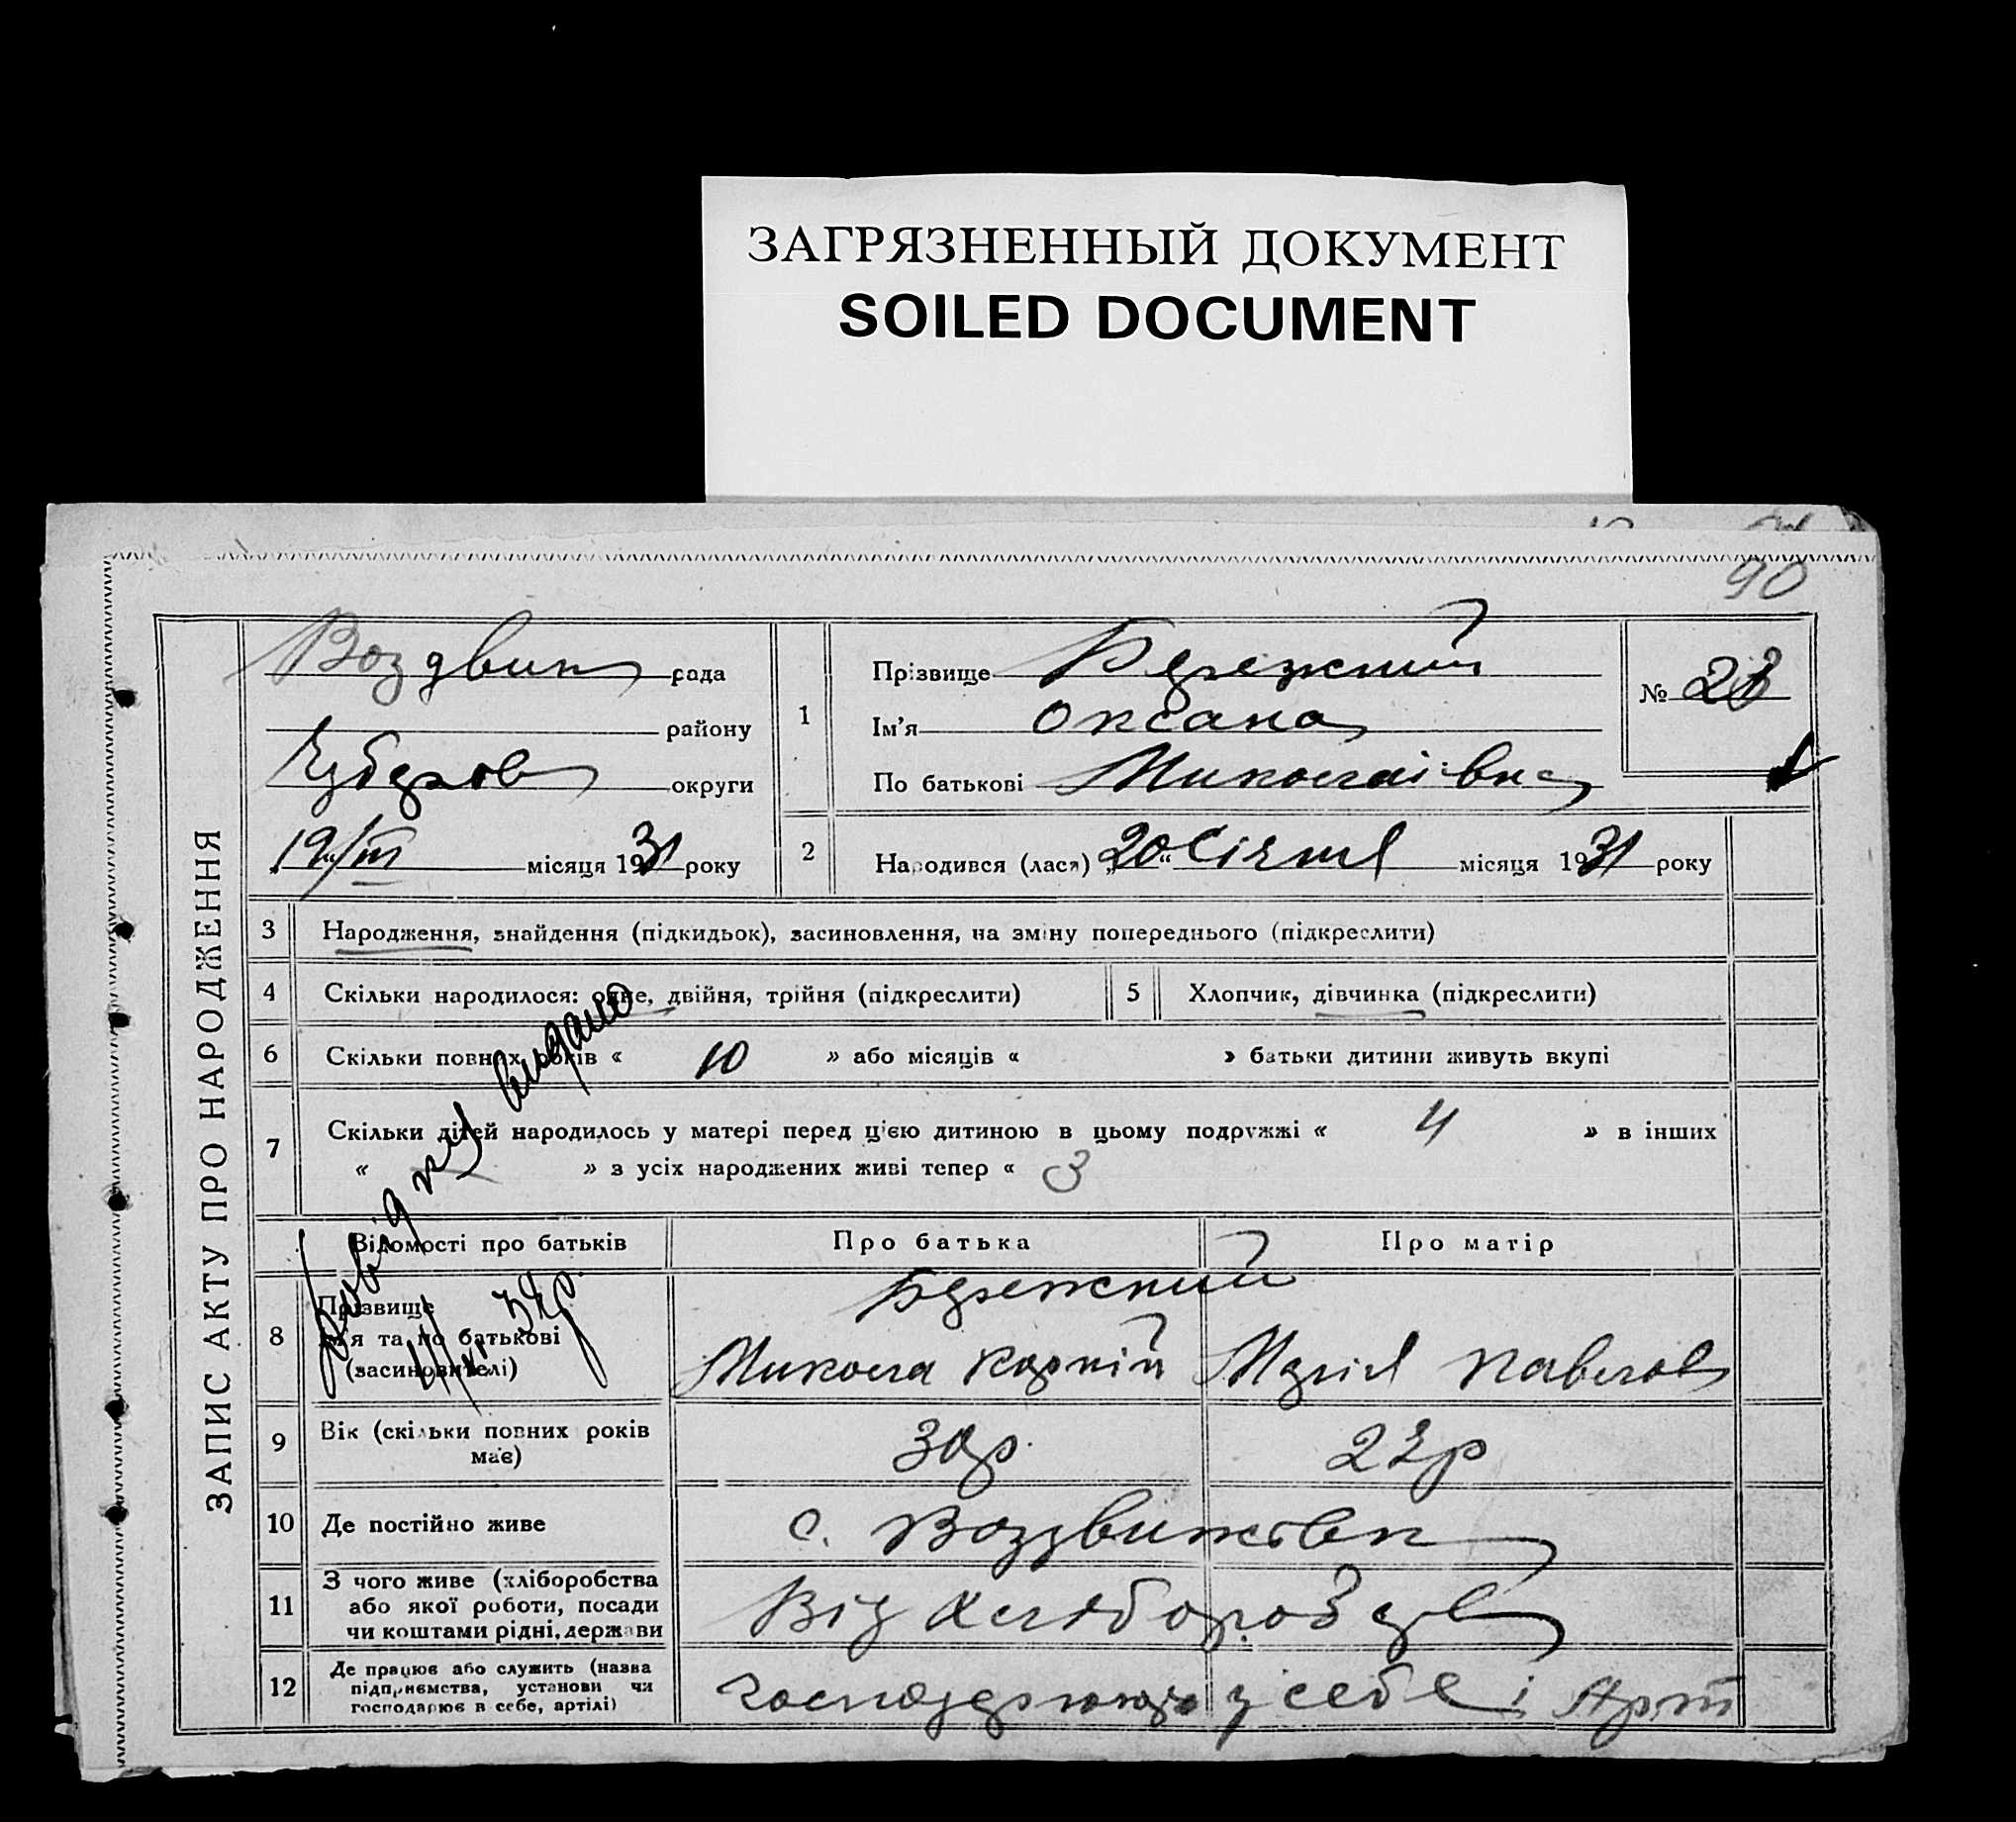 ЗАГРЯЗНЕННЫЙ ДОКУМЕНТ
SOILED DOCUMENT
90
ЗАПИС АКТУ ПРО НАРОДЖЕННЯ
Воздвиж рада
району
округи
19/III місяця 1931 року
1
Прізвище Бережний
Ім'я Оксана
По батькові Миколаівна
№ 28
2 Народився (лася) „20“ Січня місяця 1931 року
3 Народження, знайдення (підкидьок), засиновлення, на зміну попереднього (підкреслити)
4 Скільки народилося: одне, двійня, трійня (підкреслити) 5 Хлопчик, дівчинка (підкреслити)
6 Скільки повних років « 10 » або місяців « » батьки дитини живуть вкупі
7 Скільки дітей народилось у матері перед цією дитиною в цьому подружжі « 4 » в інших
« — » з усіх народжених живі тепер « 3
Довідку видано
Відомості про батьків Про батька Про матір
8 Прізвище
ім'я та по батькові
(засиновителі)
Бережний
Микола Карпів Марія Павлов
9 Вік (скільки повних років має) 30р
10 Де постійно живе с. Воздвиживк
11 З чого живе (хліборобства
або якої роботи, посади
чи коштами рідні, держави
Від
12 Де працює або служить (назва
підприємства, установи чи
господарює в себе, артілі)
у себе і Арт